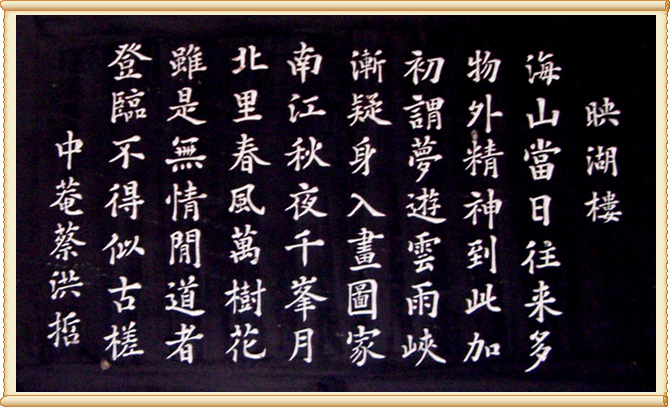 映湖樓
海山當日往来多
物外精神到此加
初謂夢遊雲雨峽
漸疑身入畫圖家
南江秋夜千峯月
北里春風萬樹花
雖是無情閒道者
登臨不得似古槎
中菴蔡洪哲